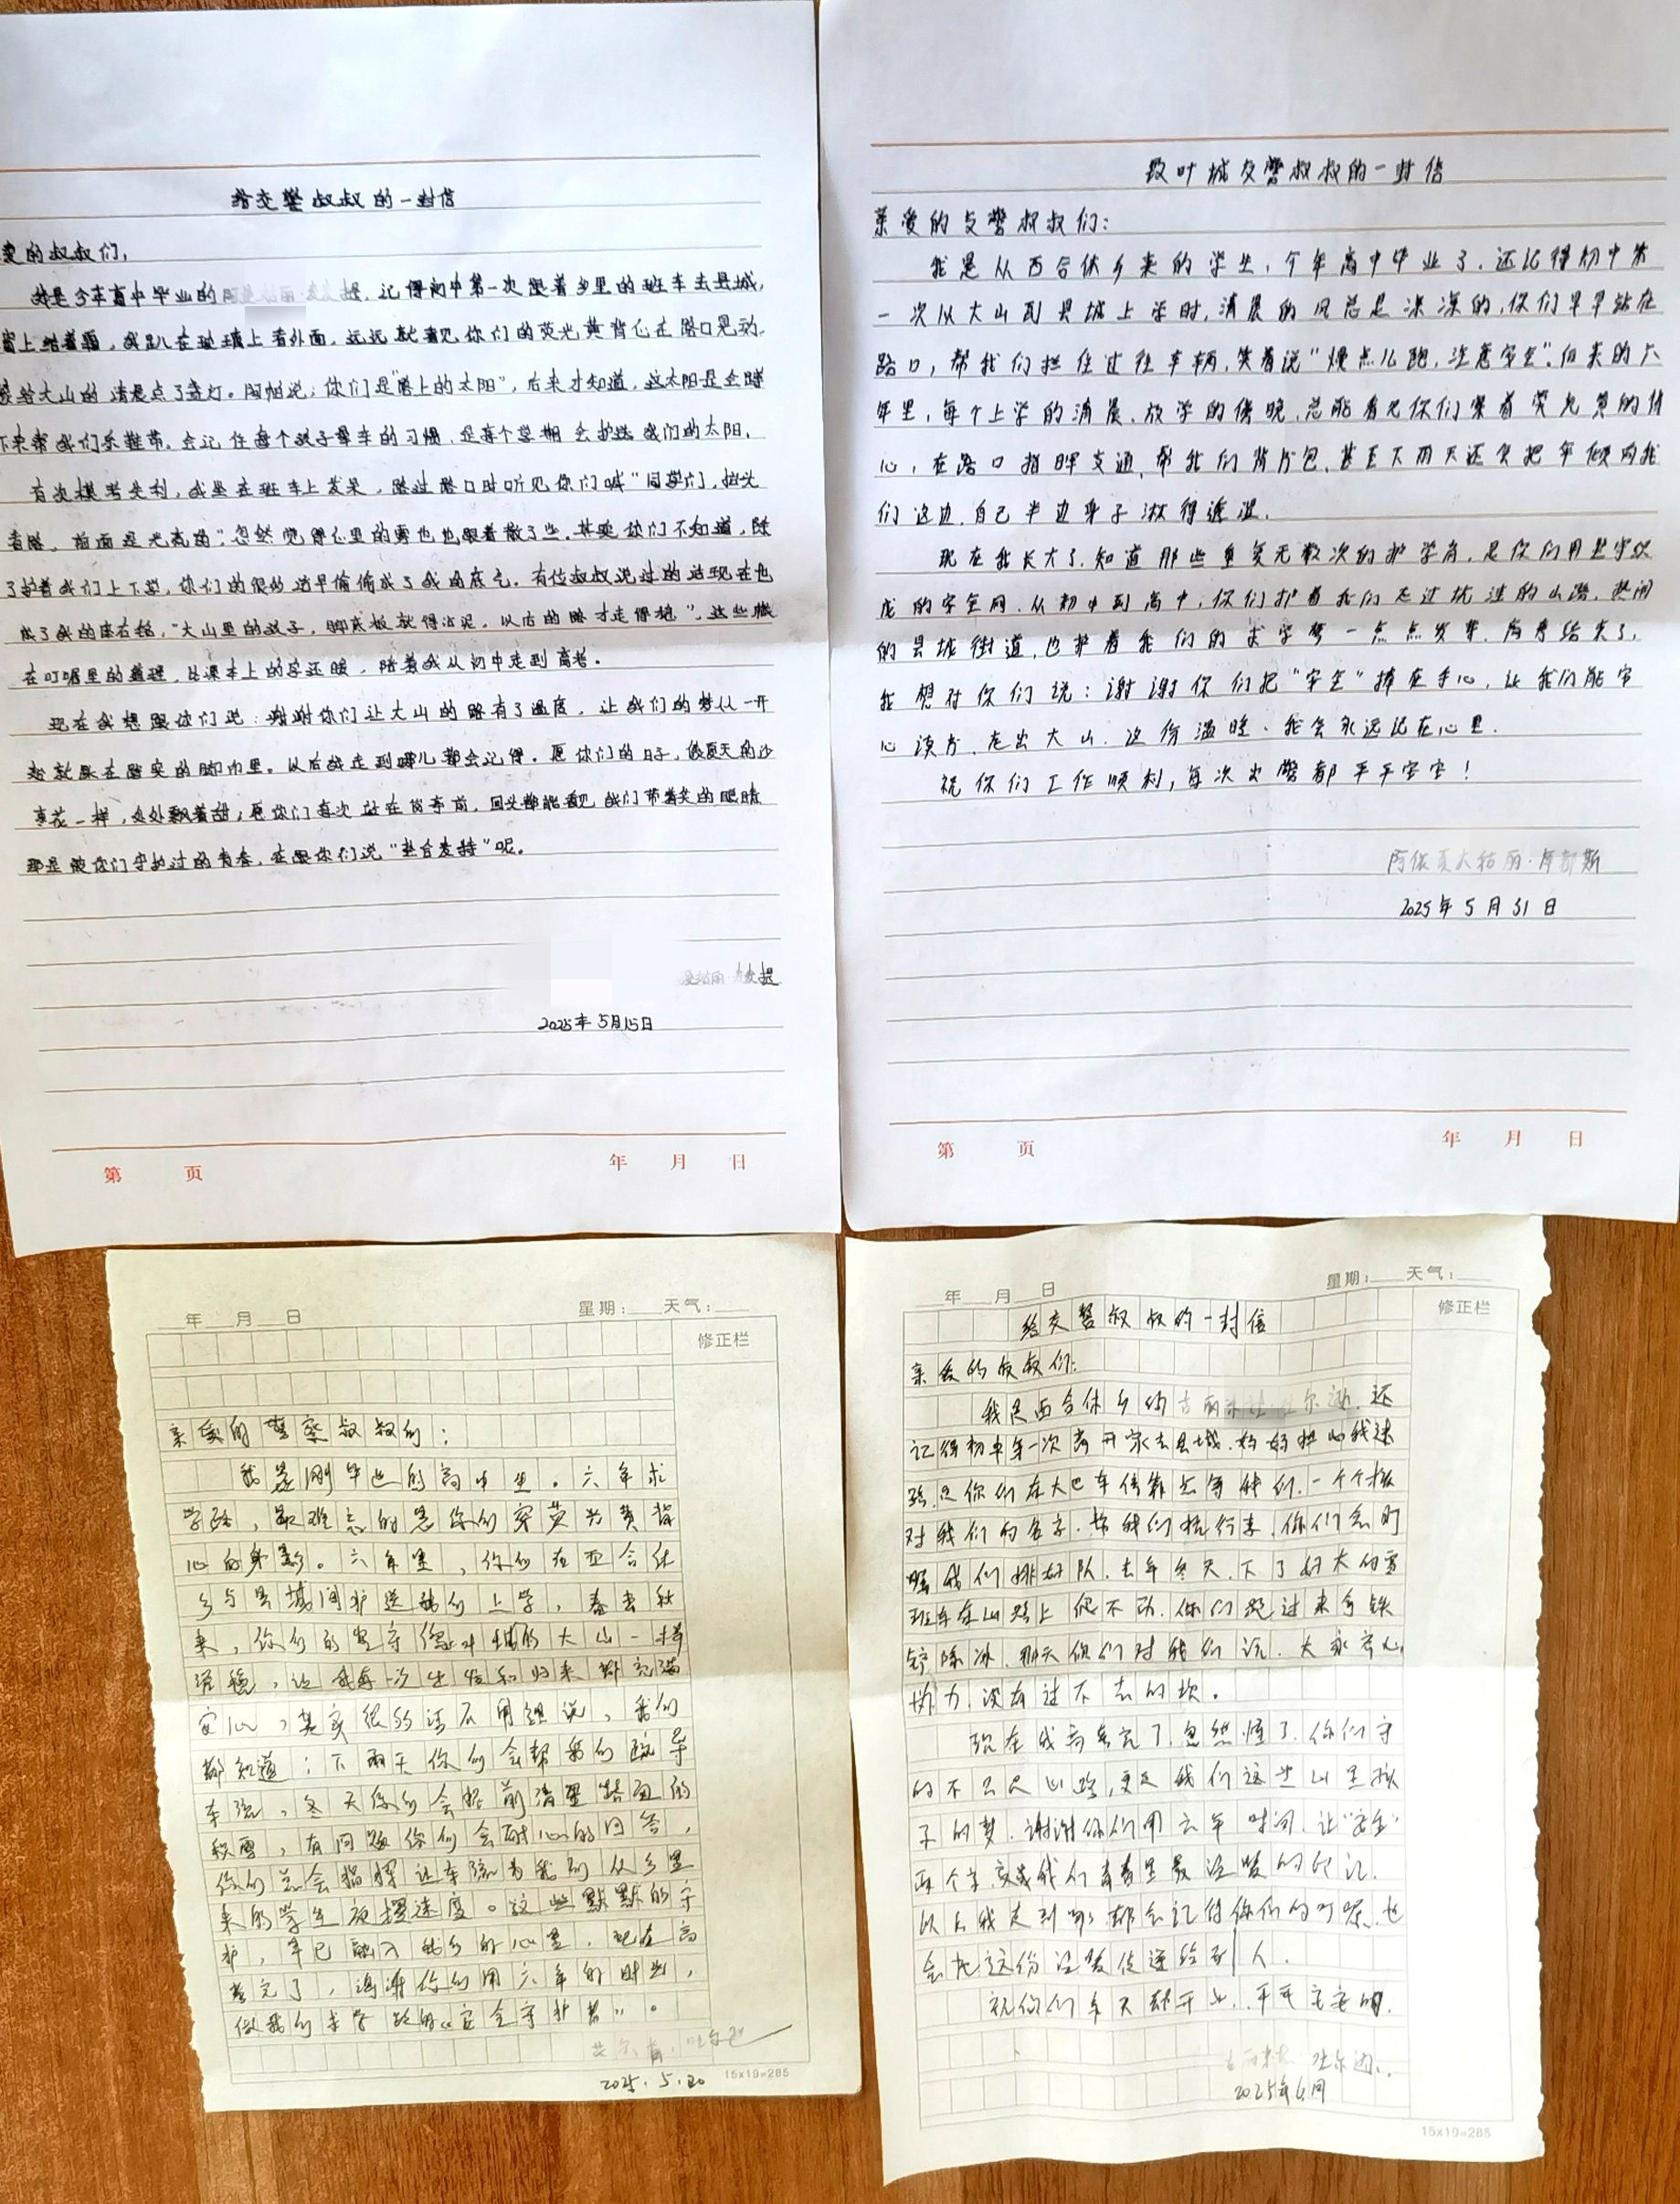 给交警叔叔的一封信
爱的叔叔们,
我是今年高中毕业的 记得初中第一次跟着乡里的班车去县城,
窗上结着霜,我趴在玻璃上看外面,远远就看见你们的荧光黄背心在路口晃动.
给大山的清晨点了盏灯。阿帕说:你们是“路上的太阳”,后来才知道,这太阳是会蹲
下来帮我们系鞋带。会记住每个孩子晕车的习惯,是每个学期会护送我们的太阳.
有次模考失利,我坐在班车上发呆,路过路口时听见你们喊“同学们,抬头
看路,前面是光亮的”.忽然觉得心里的雾也跟着散了些.其实你们不知道,除
了护着我们上下学,你们的很多话早偷偷成了我的底气.有位叔叔说过的话现在也
成了我的座右铭,“大山里的孩子,脚底板就得沾泥,以后的路才走得稳”,这些藏
在叮嘱里的道理,比课本上的字还暖,陪着我从初中走到高考。
现在我想跟你们说:谢谢你们让大山的路有了温度,让我们的梦从一开
始就踩在踏实的脚印里。以后我走到哪儿都会记得.愿你们的日子,像夏天的沙
枣花一样,处处飘着甜;愿你们每次站在岗亭前,回头都能看见我们带着笑的眼睛
那是被你们守护过的青春,在跟你们说“
2025年5月15日
第 页 年 月 日
致叶城交警叔叔的一封信
亲爱的交警叔叔们:
我是从西合休乡来的学生,今年高中毕业了.还记得初中第
一次从大山到县城上学时,清晨的风总是凉凉的,你们早早站在
路口,帮我们拦住过往车辆,笑着说“慢点儿跑,注意安全”.后来的六
年里,每个上学的清晨、放学的傍晚,总能看见你们穿着荧光黄的背
心,在路口指挥交通,帮我们背书包,甚至下雨天还会把伞倾向我
们这边,自己半边身子淋得透湿.
现在我长大了,知道那些重复无数次的护学岗,是你们用坚守织
成的安全网.从初中到高中,你们护着我们走过坑洼的山路、热闹
的县城街道,也护着我们的求学梦一点点发芽.高考结束了,
我想对你们说:谢谢你们把“安全”捧在手心,让我们能安
心读书,走出大山.这份温暖,我会永远记在心里.
祝你们工作顺利,每次出警都平平安安!
阿依夏木古丽·库都斯
2025年5月31日
第 页 年 月 日
年 月 日 星期: 天气:
修正栏
亲爱的警察叔叔们:
我是刚毕业的高中生。六年求
学路,最难忘的是你们穿荧光黄背
心的身影。六年里,你们在西合休
乡与县城间护送我们上学,春去秋
来,你们的坚守像 的大山一样
沉稳,让我每一次出发和归来都充满
安心,其实很多话不用细说,我们
都知道:下雨天你们会帮我们疏导
车流,冬天你们会提前清理路面的
积雪,有问题你们会耐心的回答,
你们总会指挥让车流为我们从乡里
来的学生放慢速度。这些默默的守
护,早已融入我们的心里.现在高
考完了,谢谢你们用六年的时光,
做我们求学路的“安全守护者”。
2025.5.20
15x19=285
年 月 日 星期: 天气:
修正栏
给交警叔叔的一封信
亲爱的叔叔们:
我是西合休乡的 还
记得初中第一次离开家去县城,妈妈担心我迷
路,是你们在大巴车停靠点等我们,一个个核
对我们的名字,帮我们搬行李,你们会叮
嘱我们排好队,去年冬天,下了好大的雪
班车在山路上爬不动,你们跑过来拿铁
铲除冰,那天你们对我们说,大家齐心
协力,没有过不去的坎。
现在我高考完了,忽然懂了,你们守
的不只是山路,更是我们这些山里孩
子的梦.谢谢你们用六年时间,让“安全”
两个字,变成我们青春里最温暖的印记.
以后我走到哪,都会记住你们的叮嘱,也
会把这份温暖传递给别人.
祝你们 平平安安的.
2025年6月
15x19=285